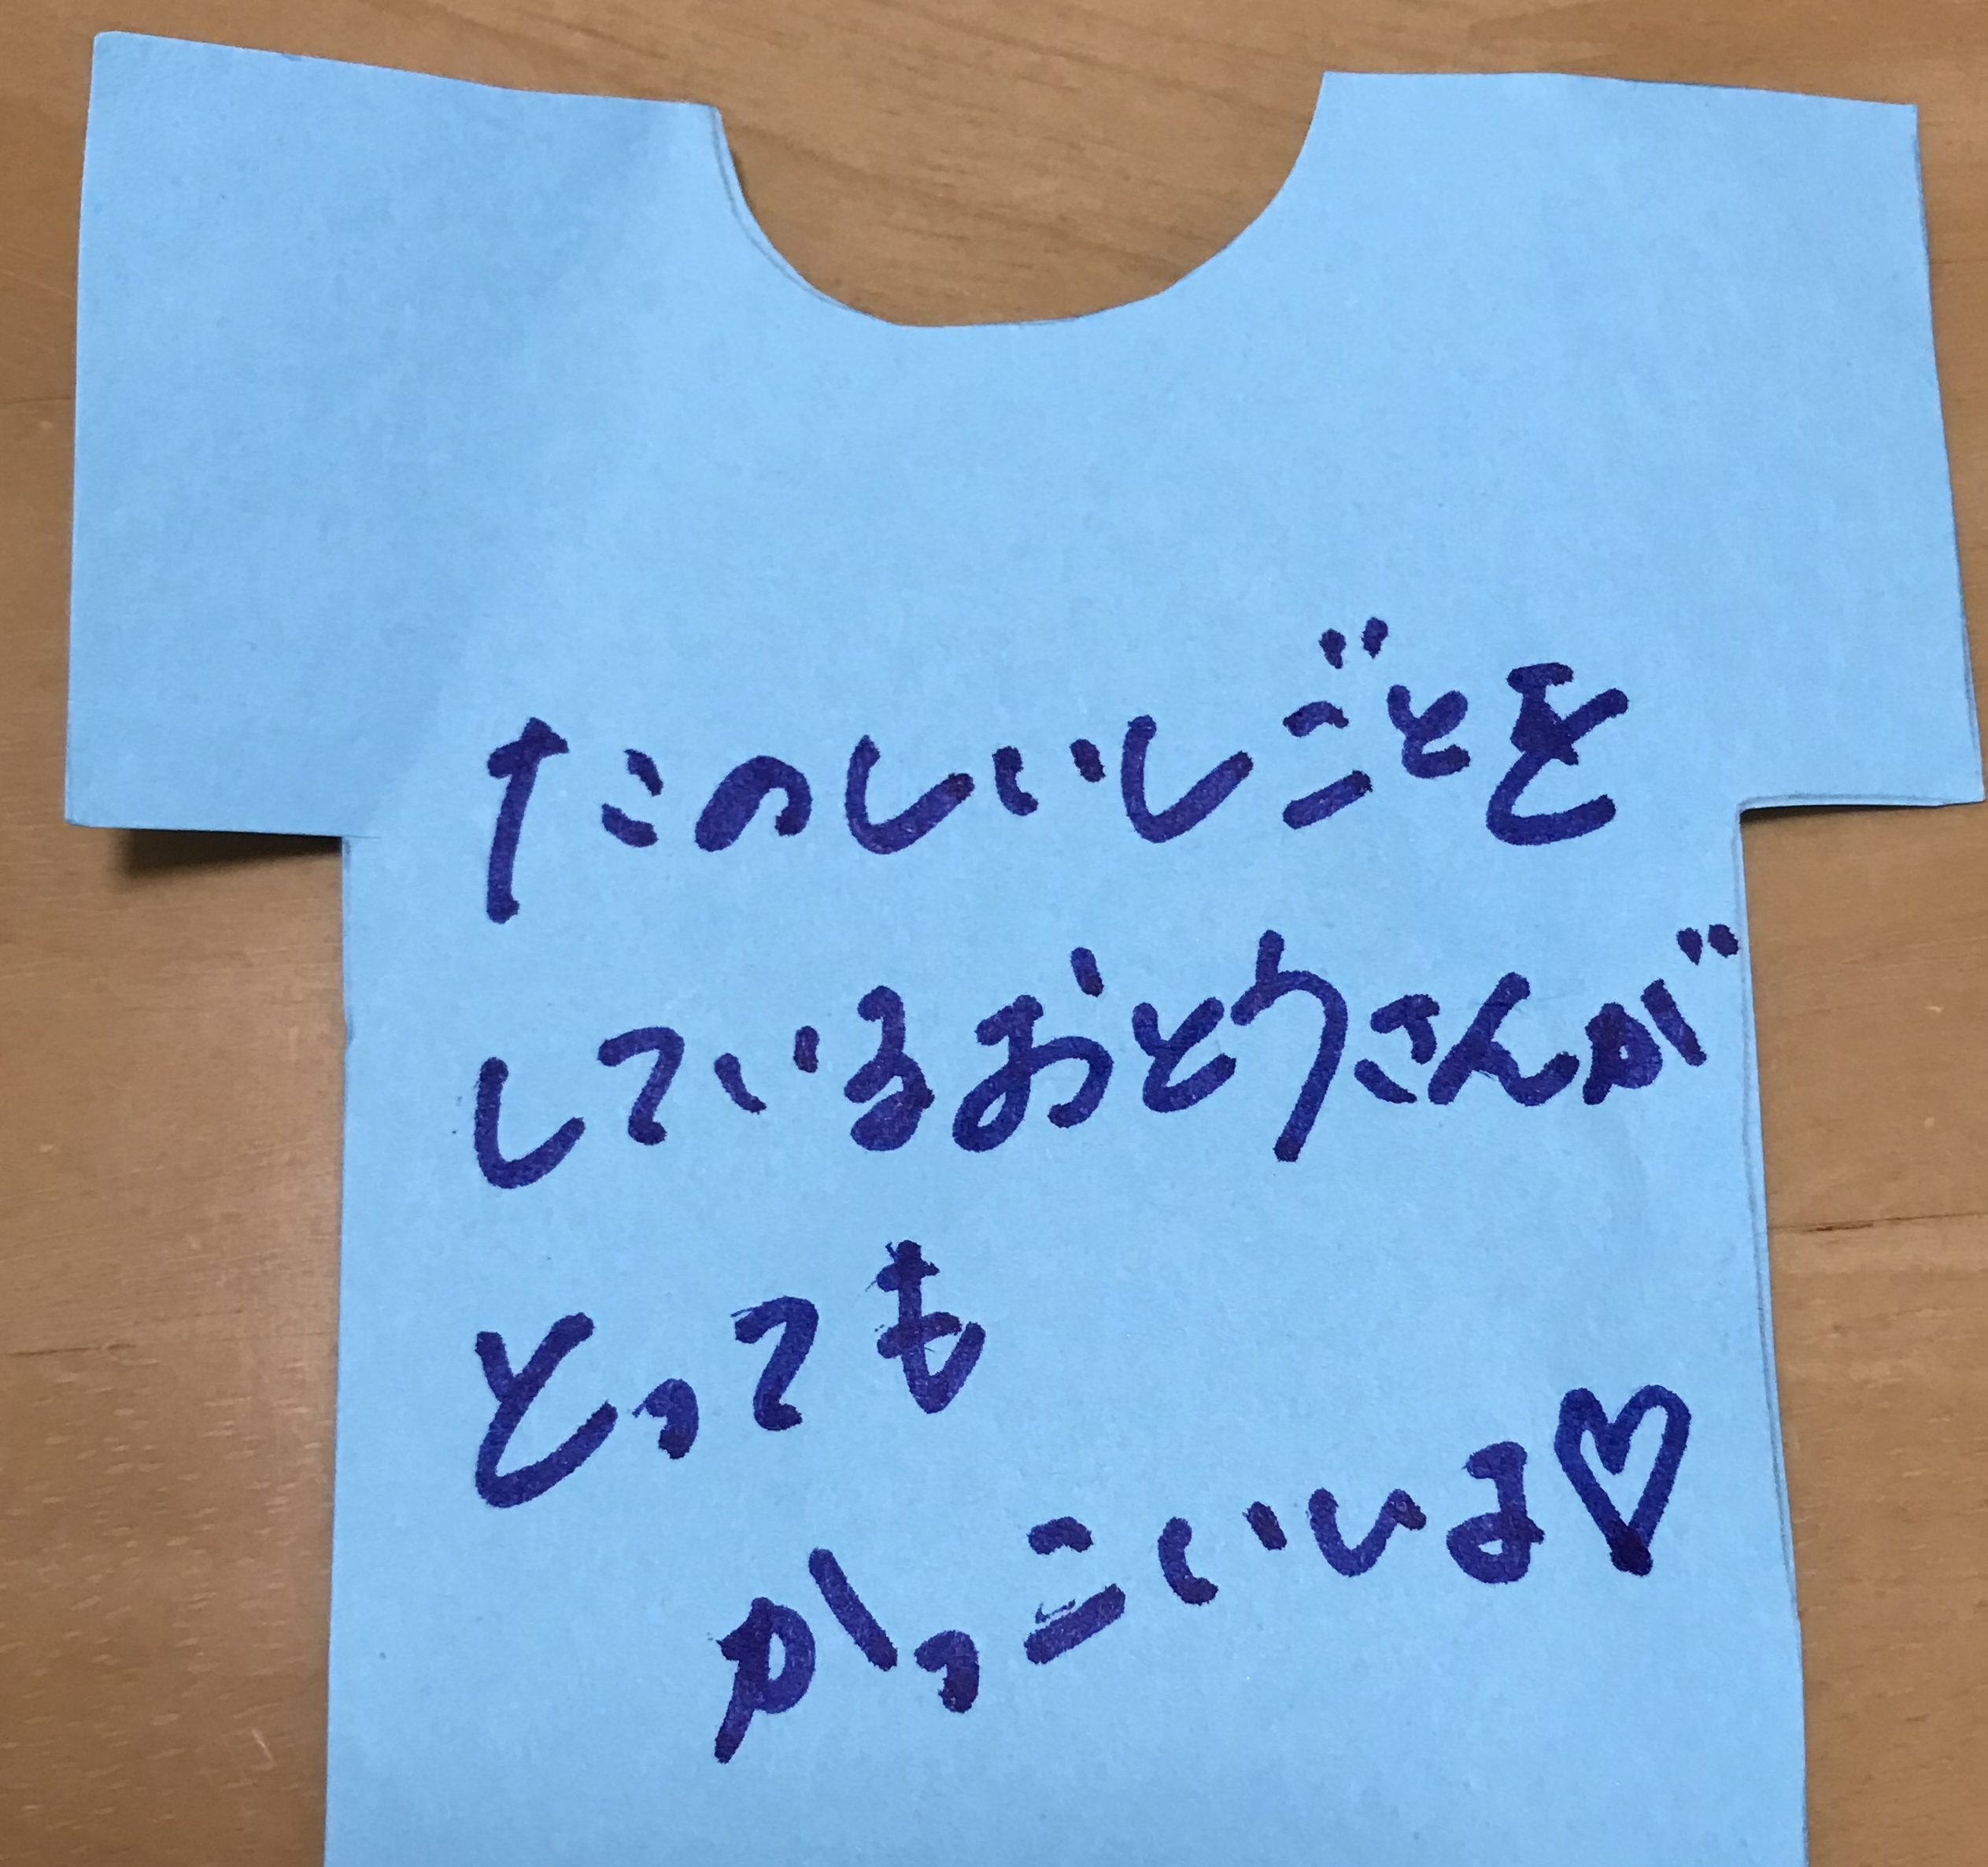 たのしいしごとを
しているおとうさんが
とっても
かっこいいよ♡